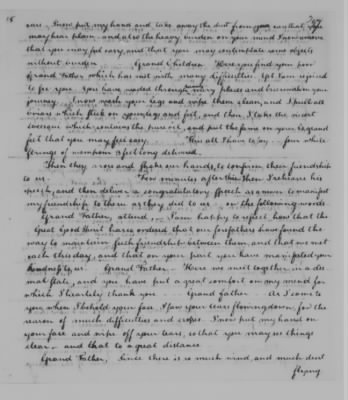 15
ears. I now put my hand and take away the dust from your ears that you
may hear plain and also the heavy burden on your mind I now remove
that you may feel easy, and that you may contemplate some objects
without burden. Grand Children Here you find your poor
Grand Father which has met with many difficulties. Yet I am rejoiced
to see you. You have waded through many places and briars on your
journey. I now wash your legs and wipe them clean, and I pull all
briars which stick on your legs and feet, and then I take the nicest
weesqui which contains the pure oil, and put the same on your legs and
feet that you may feel easy. This all I have to say. four white
strings of wampum after long delivered
Then they arose and shake our hands, to confirm their friendship
to us. Few minutes after this then I rehearse his
speech, and then deliver a congratulatory speech as answer to manifest
my friendship to them as they did to us in the following words
Grand Father, attend, I am happy to reflect how that the
Great Good Spirit has so ordered that our forefathers have found the
way to maintain such friendship between them, and that we met
each this day, and that on your part you have manifested your
kindness to us. Grand Father Here we meet together in a dis
mal state, and you have put a great comfort on my mind for
which I heartily thank you Grand Father As I come to
you when I behold your face, I saw your tears flowing down for the
reason of much difficulties and crosses. I now put my hand on
your face and wipe off your tears, so that you may see things
clear and that to a great distance.
Grand Father, Since there is so much wind, and much dust
flying